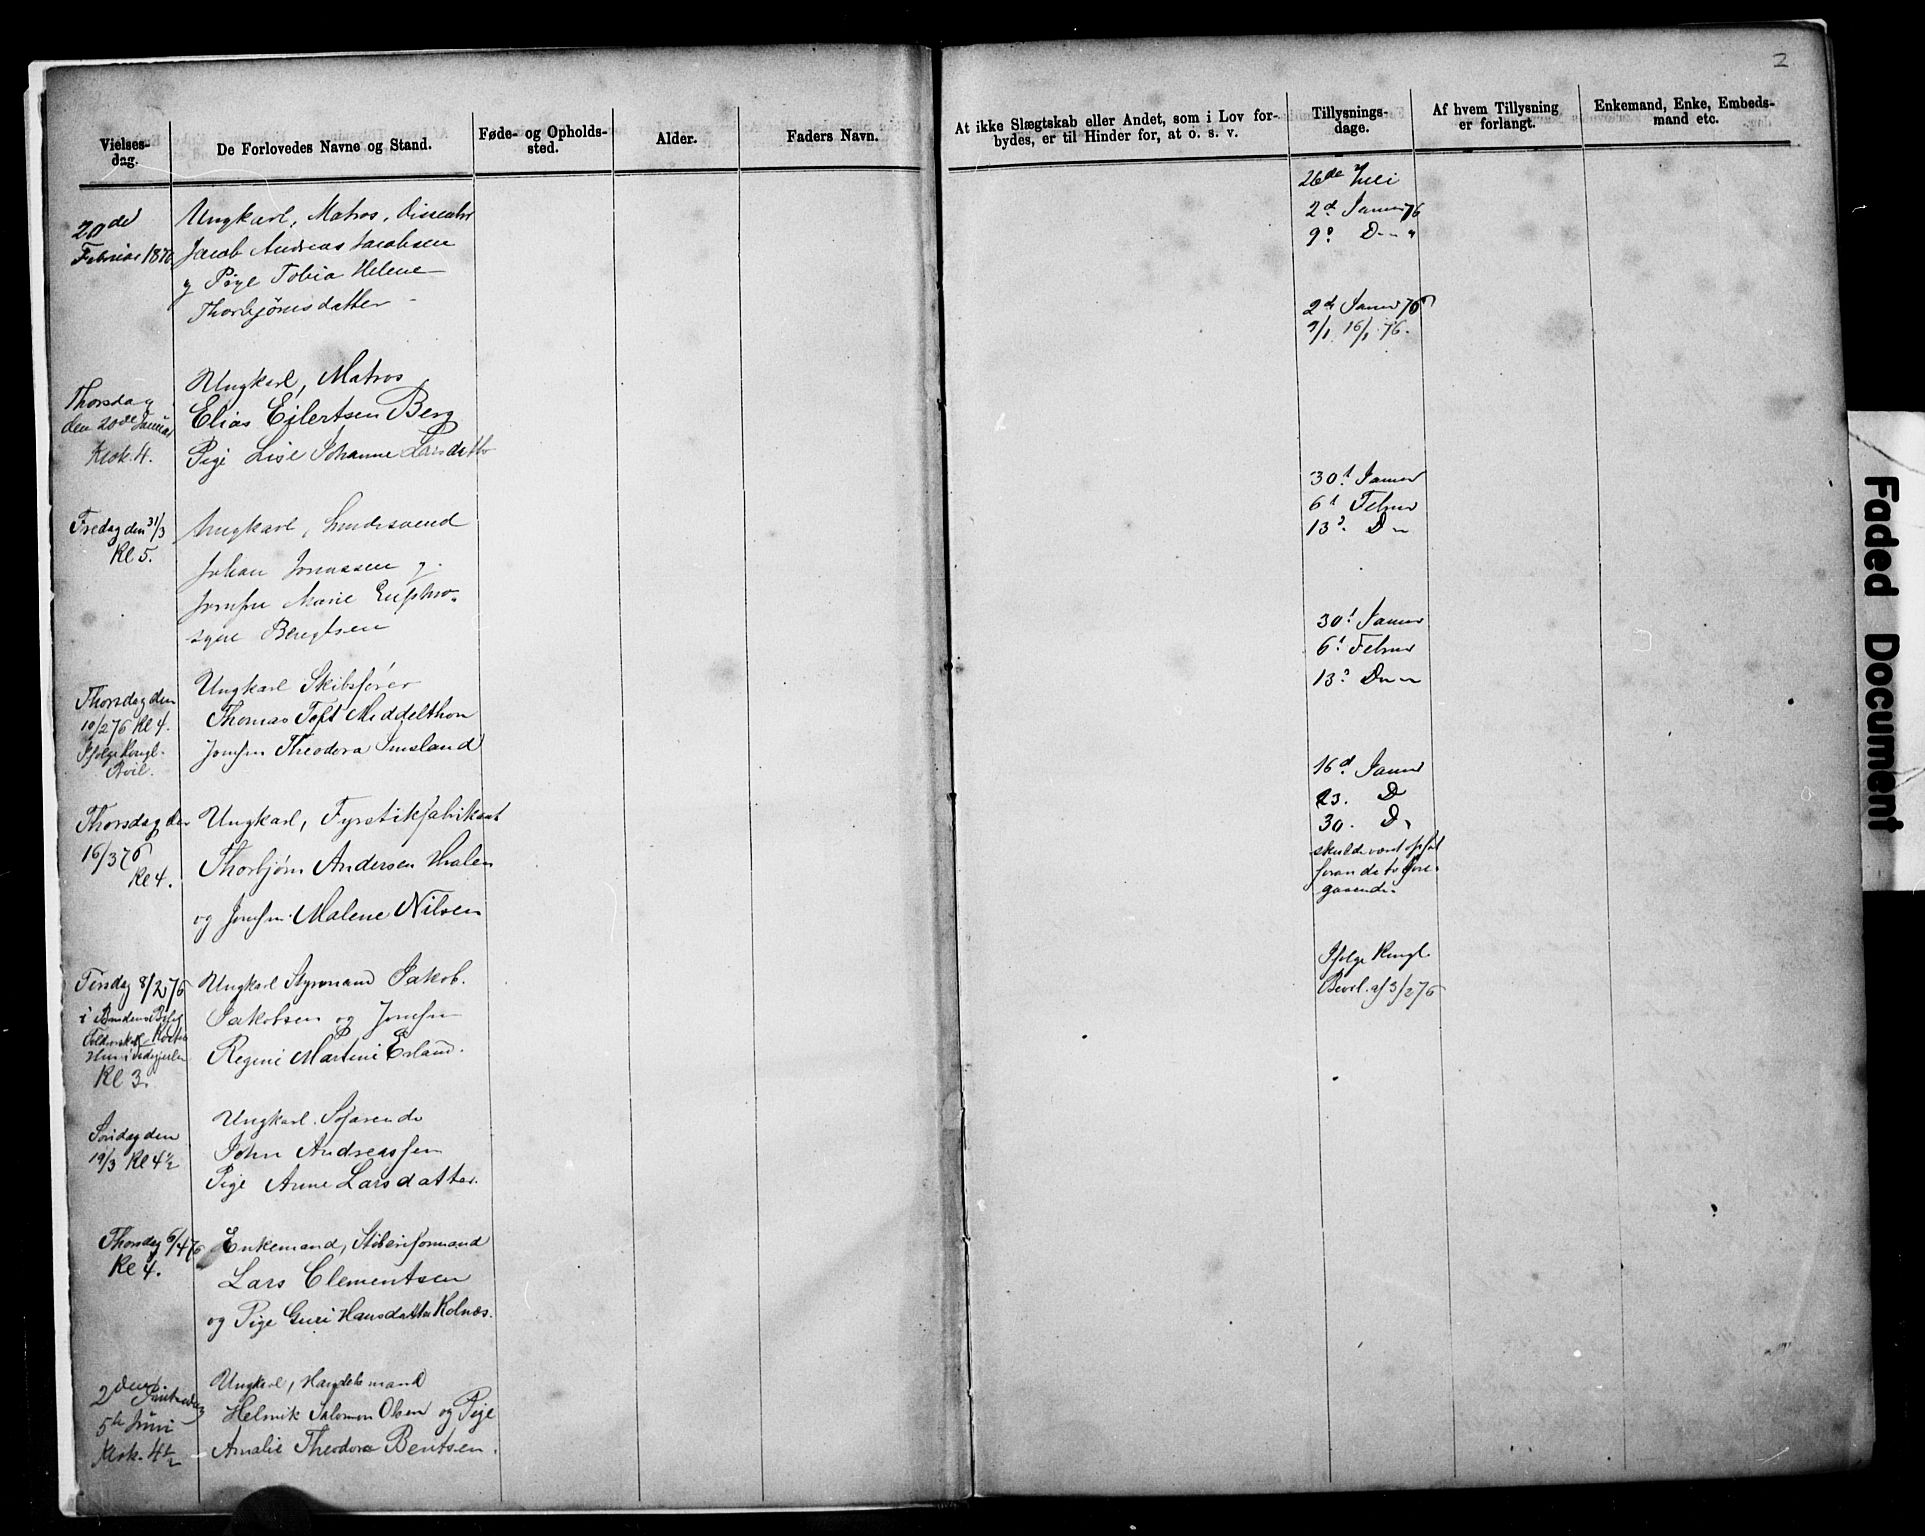 2
Vielses-
dag.
De Forlovedes Navne og Stand.
Føde- og Opholds-
sted.
Alder.
Faders Navn.
At ikke Slægtskab eller Andet, som i Lov for-
bydes, er til Hinder for, at o. s. v.
Tillysnings-
dage.
Af hvem Tillysning
er forlangt.
Enkemand, Enke, Embeds-
mand etc.
20de
Februar 1876
Ungkarl, Matros,
Jacob Andreas Jacobsen
og Pige Tobia Helene
Thorbjørnsdatter
26de Juli
2d Januar 76
9d D
2d Januar 76
9/1 16/1 76.
Thorsdag
den 20de Januar
Klok. 4.
Ungkarl, Matros
Elias Eilertsen Berg
Pige Lise Johanne Larsdatter
Fredag den 31/3
Kl 5.
Ungkarl,
Johan Jonassen og
Jomfru Marie Euphro-
syne Bengtsen
30d Januar
6d Februar
13d D
Thorsdag den
10/2 76 Kl 4.
Ifølge Kongl.
Bevil.
Ungkarl Skibsfører
Thomas Toft Middelthon
Jomfru Theodora
30d Januar
6d Februar
13d D
Thorsdag den
16/3 76
Kl 4.
Ungkarl, Fyrstikfabrikant
Thorbjørn Andersen Hualen
og Jomfru Malene Nilsen
16d Januar
23. D
30. D
skulde været opført
foran de to fore-
gaaende
Tirsdag 8/2 76
i
Kl 3.
Ungkarl Styrmand Jakob
Jakobsen og Jomfru
Regine Martine Erland.
Ifølge Kongl
Bevil. af 3/2 76
Søndag den
19/3 Kl 4½
Ungkarl. Søfarende
John Andreassen
Pige Anne Larsdatter.
Thorsdag 6/4 76
Kl 4.
Enkemand, Støberiformand
Lars Clementsen
og Pige Guri Hansdatter Kolnæs.
2den Pintsedag
5te Juni
Klok. 4½
Ungkarl, Handelsmand
Helmik Salomon Olsen og Pige
Amalie Theodora Bentsen.
Faded Document